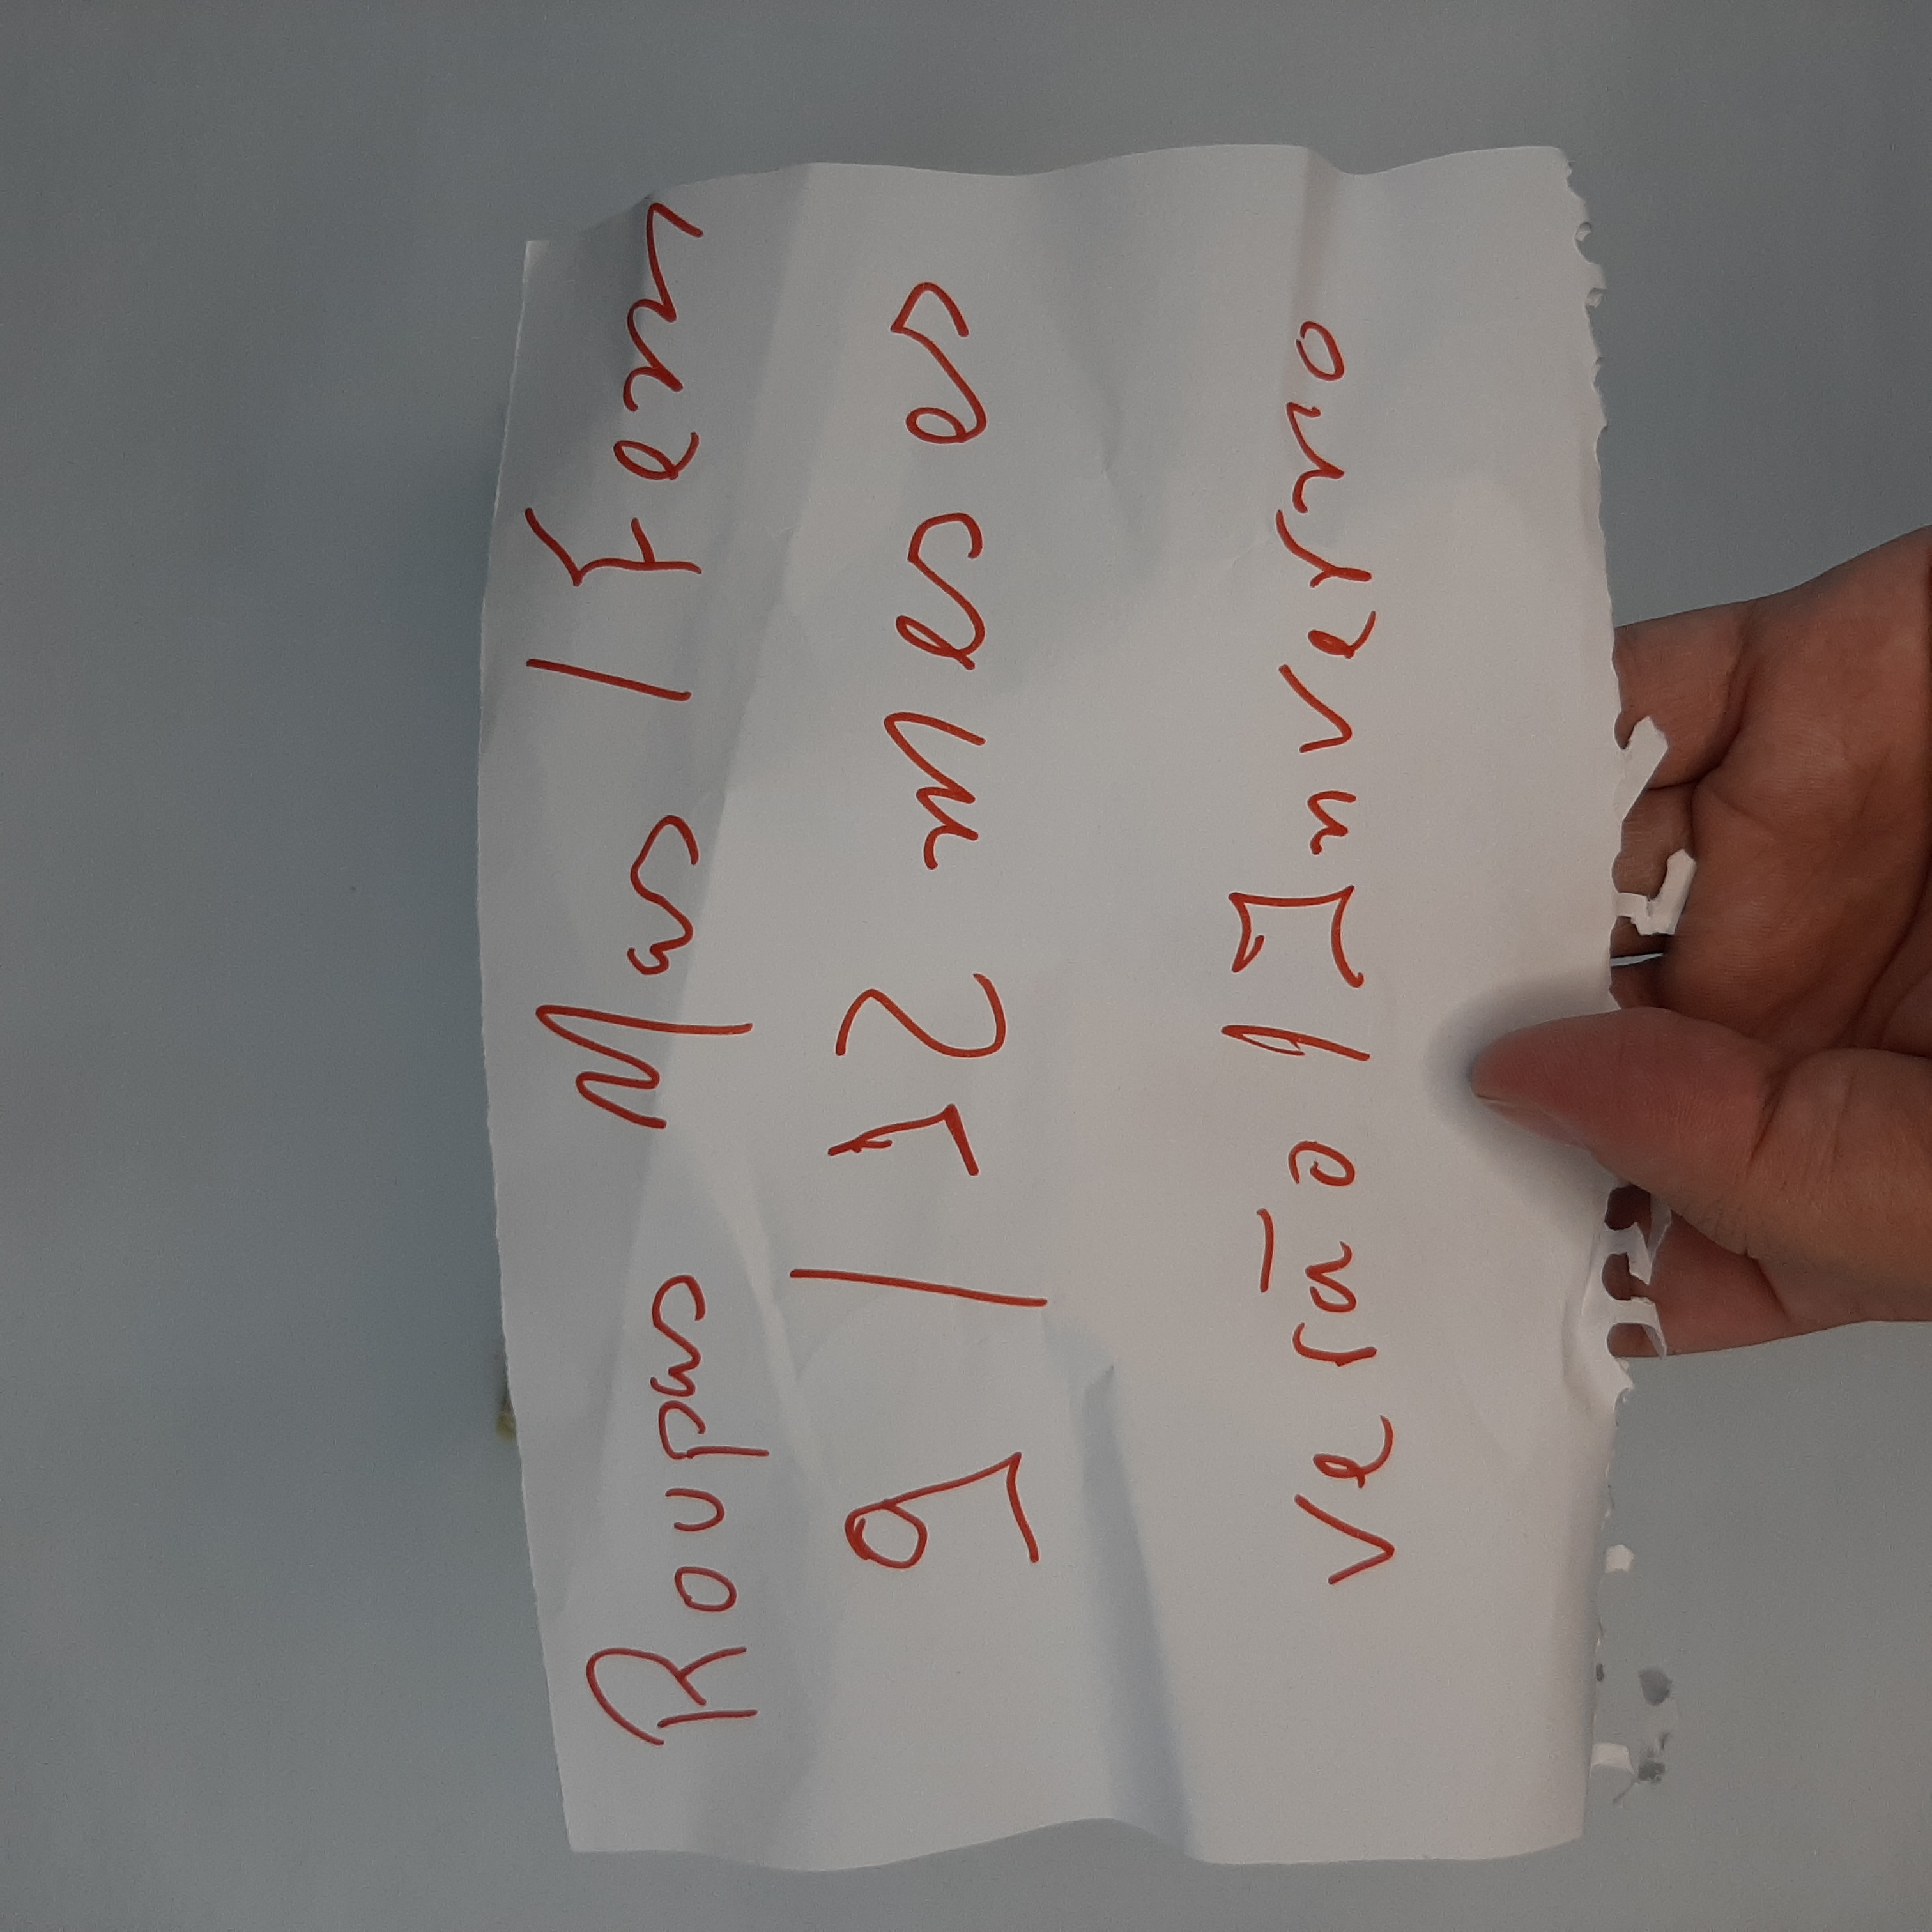 Roupas Mas / Fem
9 / 12 meses
verão / Inverno